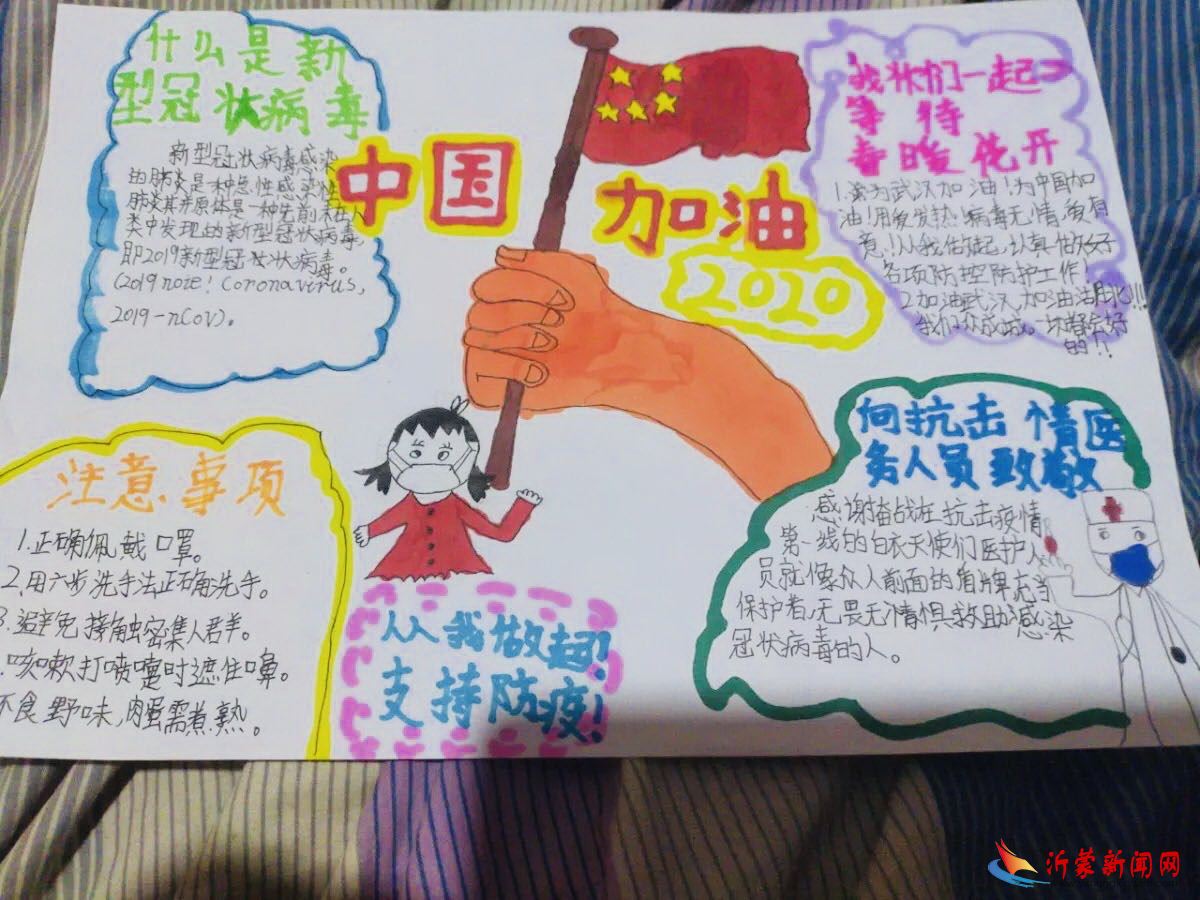 什么是新
型冠状病毒
新型冠状病毒感染
的肺炎是一种急性感染性
肺炎其病原体是一种先前未在人
类中发现的新型冠状病毒,
即2019新型冠状病毒。
(2019 note! Coronavirus,
2019-nCoV)。
中国
加油
2020
我们一起
等待
春暖花开
1.第为武汉加油!为中国加
油!用爱发热 病毒无情,爱有
意!从我做起,认真做好
各项防控防护工作!
2.加油武汉,加油
我们众志成城,一切都会好
的!!
注意事项
1.正确佩戴口罩。
2.用六步洗手法正确洗手。
3.避免接触密集人君羊。
.咳嗽打喷嚏时遮住鼻。
不食野味,肉蛋需煮熟。
从我做起!
支持防疫!
向抗击情医
务人员致敬
感谢奋战在抗击疫情
第一线的白衣天使们医护人
员就像众人前面的盾牌充当
保护者,无畏无情惧救助感染
冠状病毒的人。
沂蒙新闻网